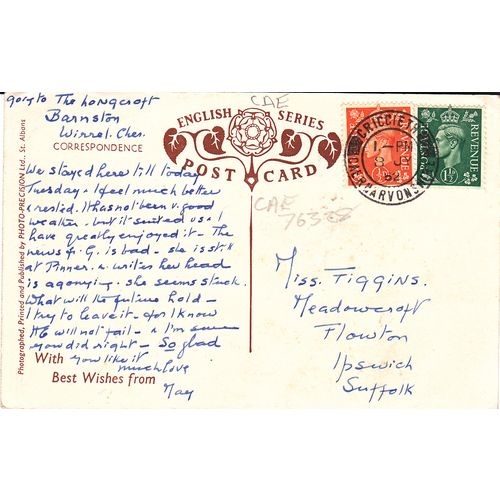 going to The Longcroft
Barnston
Wirral. Ches.
CORRESPONDENCE
We stayed here till today
Tuesday. I feel much better
& rested. It has not been v. good
weather. but it suited us & I
have greatly enjoyed it - The
news of G. is bad - she is still
at Pinner. & writes her head
is agonying. she seems stuck.
What will the future hold -
I try to leave it - for I know
He will not fail - & I'm
you did right - So glad
you like it
much love
May
With
Best Wishes from
Photographed, Printed and Published by PHOTO-PRECISION Ltd., St. Albans
CAE
ENGLISH SERIES
POST CARD
CAE
76358
CRICCIETH
1 - PM
JE
52
CAERNARVONSHIRE
POSTAGE
REVENUE
1½D
Miss. Tiggins.
Meadowcroft
Flowton
Ipswich
Suffolk